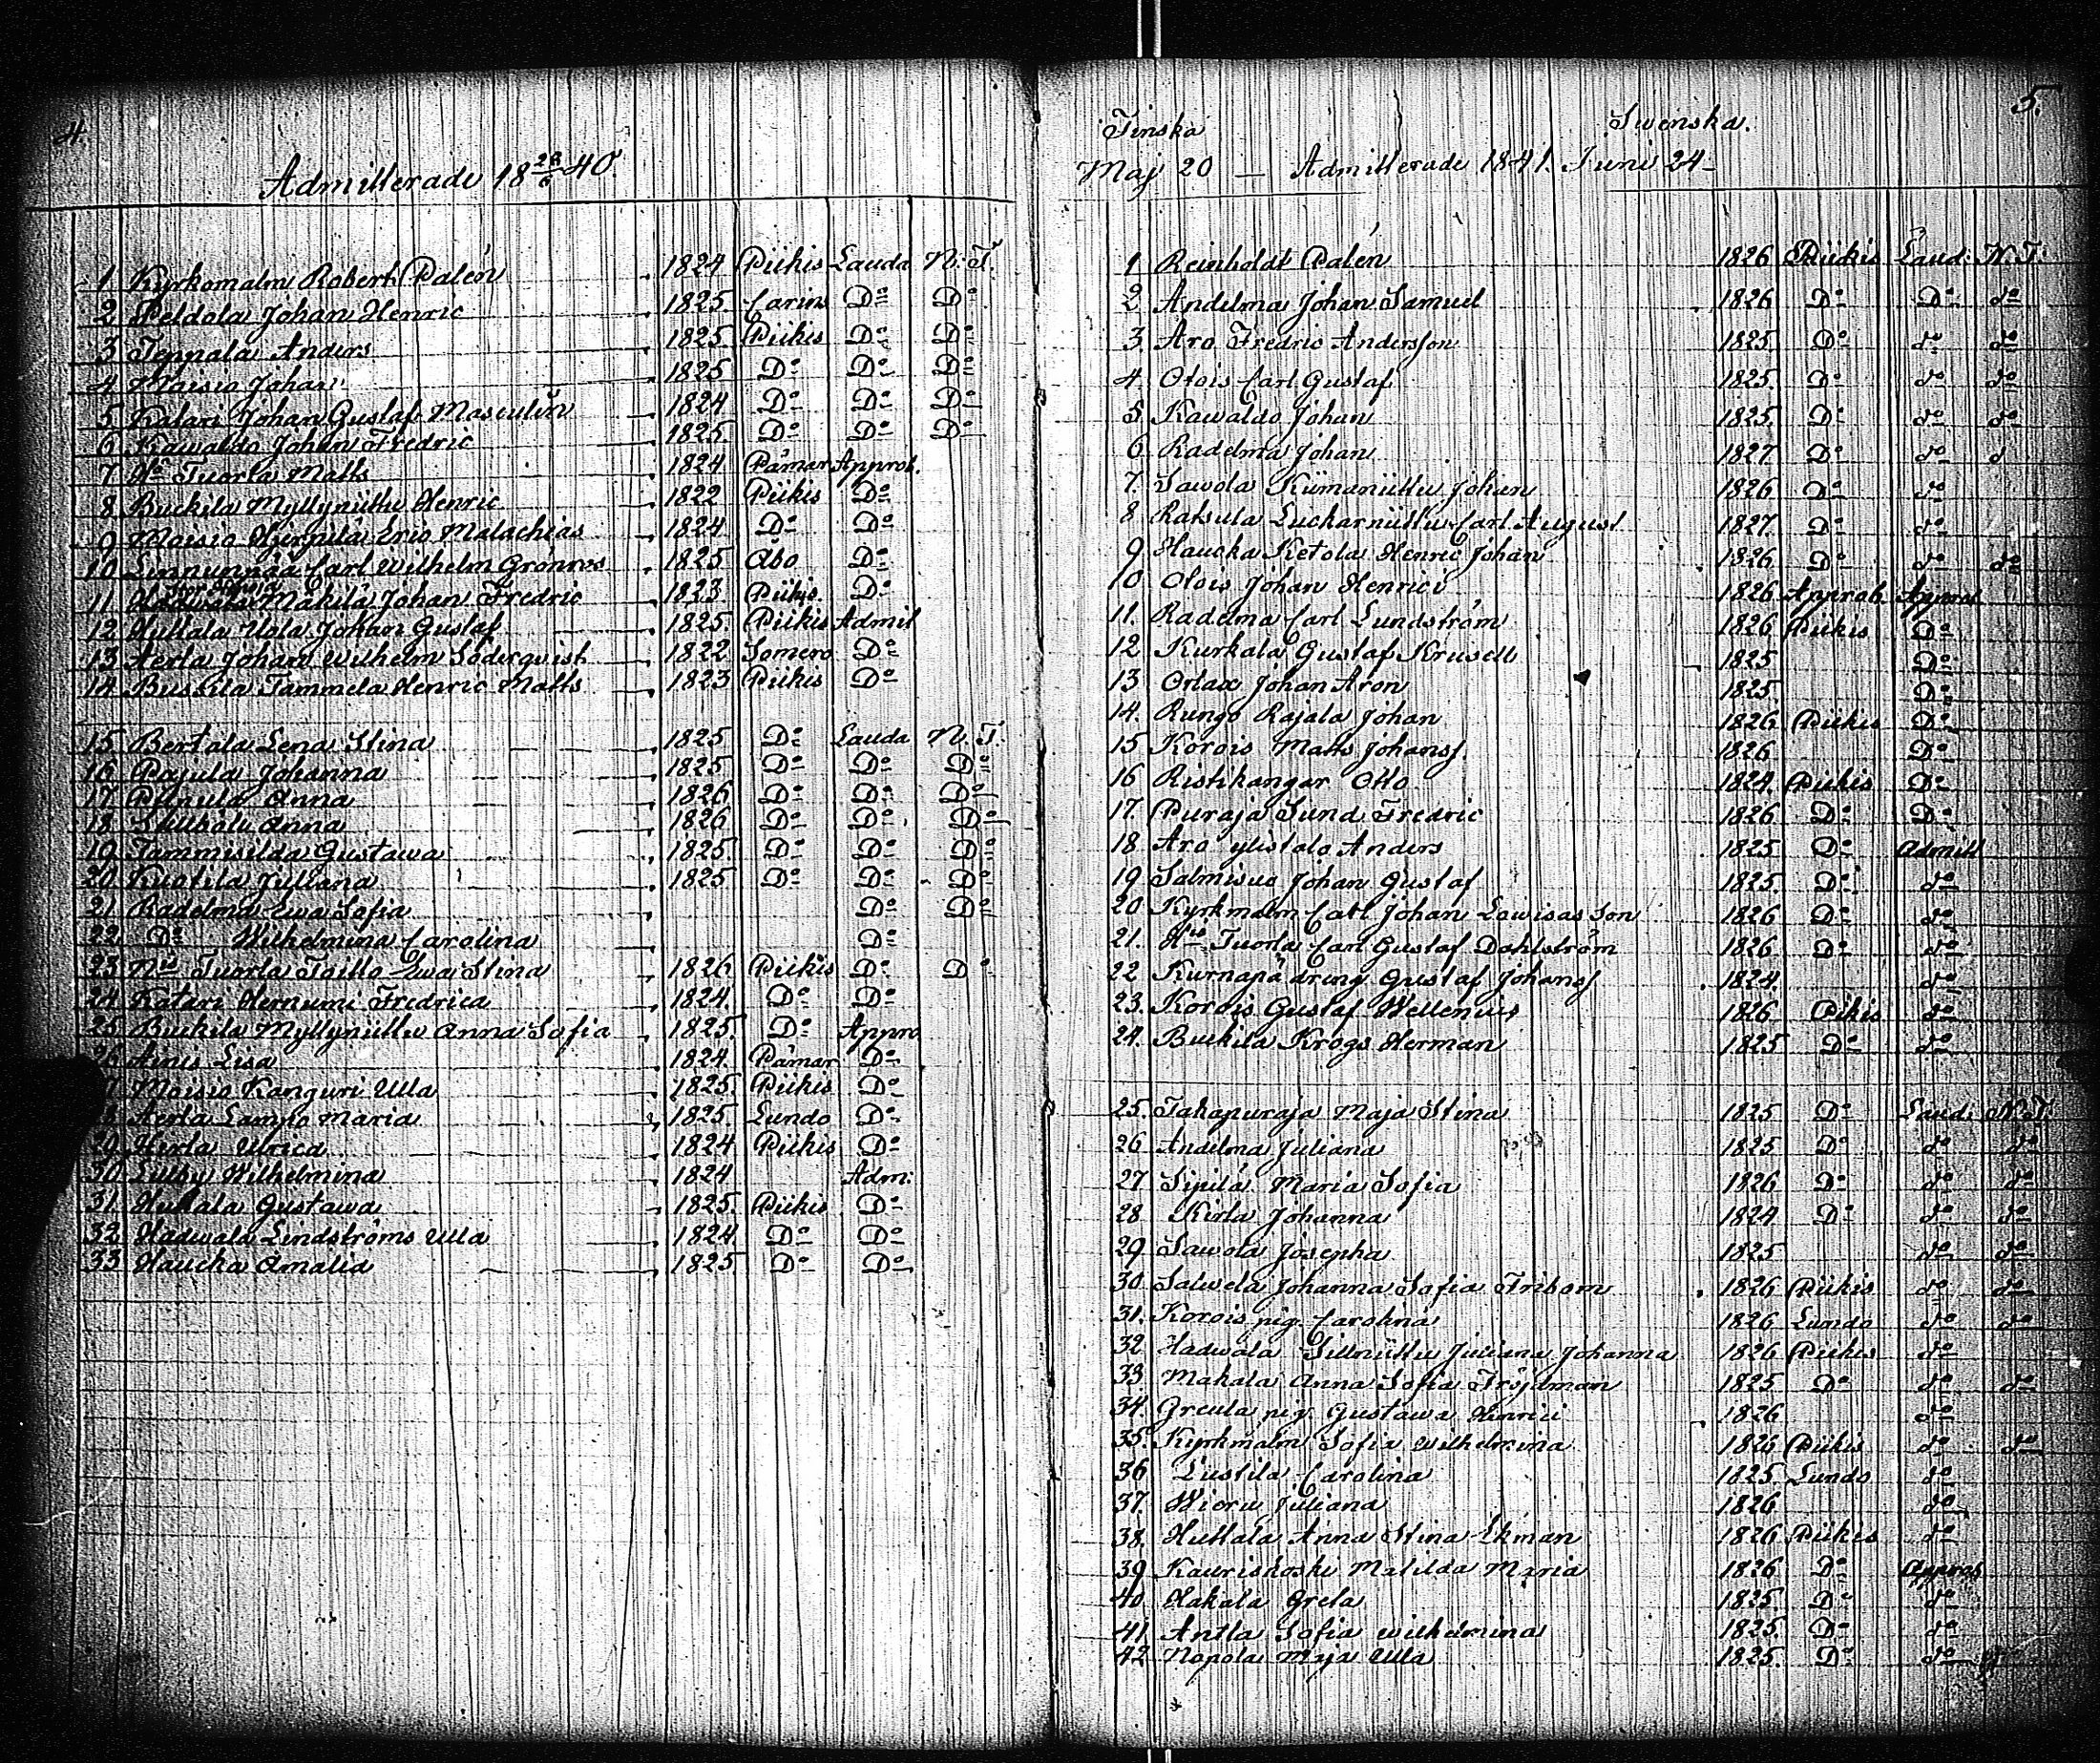 4.
Admitterade 18 28/6 40.
1 Kyrkomalm Robert Palén 1824 Piikis Lauda N. T.
2 Peldola Johan Henric 1825. Carins Do Do
3 Teppala Anders 1825. Piikis Do Do
4 Moisio Johan 1825 Do Do Do
5 Katari Johan Gustaf Masculin 1824 Do Do Do
6 Kawaldo Johan Fredric 1825. Do Do Do
7 Tuorla Matts 1824 Pämar Approb.
8 Buckila Myllynüttu Henric 1822 Piikis Do
9 Moisio Eric Malachias 1824 Do Do
10 Linnunpää Carl Wilhelm Grönros 1825 Åbo Do
11 Mäkilä Johan Fredric 1823 Piikis. Do
12 Huttala Uola Johan Gustaf 1825. Piikis Admit
13 Aerla Johan Wilhelm Söderqvist 1822 Somero Do
14 Bussila Tammela Henric Matts 1823 Piikis Do
15 Bertala Lena Stina 1825 Do Lauda N. T.
16 Pajula Johanna 1825 Do Do Do
17 Pitnula Anna 1826 Do Do Do
18 Anna 1826 Do Do Do
19 Tammisilda Gustawa 1825. Do Do Do
20 Kustila Juliana 1825 Do Do Do
21 Radelma Ewa Sofia Do Do
22 Do Wilhelmina Carolina Do
23 Tuorla Toillo Ewa Stina 1826 Piikis Do Do
24 Katari Hernumi Fredrica 1824. Do Do
25 Buckila Myllynüttu Anna Sofia 1825. Do Appro
26 Ainis Lisa 1824. Pämar Do
7 Moisio Kanguri Ulla 1825. Piikis Do
8 Aerla Lampo Maria 1825. Lundo Do
29 Hirla Ulrica 1824 Piikis Do
30 Lilby Wilhelmina 1824 Adm:
31 Huhala Gustawa 1825. Piikis Do
32 Hadwala Lindströms Ulla 1824. Do Do
33 Haucka Amalia 1825. Do Do
5.
Finska Swenska.
Maj 20 — Admitterade 1841. Juni 24 –
1 Reinholdt Palén 1826 Piikis Laud: N. T.
2 Andelma Johan Samuel 1826 Do Do do
3. Aro Fredric Andersson 1825. Do do do
4 Otois Carl Gustaf 1825. Do do do
5 Kawaldo Johan 1825. Do do do
6 Radelma Johan 1827. Do do d
7. Sawola Johan 1826 Do do
8 Raksula Carl August 1827. Do do
9 Haucka Ketola Henric Johan 1826 Do do do
10 Otois Johan Henrici 1826 Approb. Approb
11. Radelma Carl Lundström 1826 Piikis Do
12 Kurkala Gustaf Krusell 1825 Do
13 Orlax Johan Aron 1825 Do
14. Rungo Rajala Johan 1826 Piikis Do
15 Korois Matts Johanss. 1826 Do
16 Ristikangar Otto 1824. Piikis Do
17. Puraja Sund Fredric 1826 Do Do
18 Aro ylistalo Anders 1825 Do Admitt
19 Salmisuo Johan Gustaf 1825. Do do
20 Kyrkmalm Carl Johan Lowisas Son 1826 Do do
21. Tuorla Carl Gustaf Dahlström 1826 Do do
22 Kurnapä dreng Gustaf Johanss 1824. do
23. Korois Gustaf Wellenius 1826 Pikis do
24. Buckila Krogs Herman 1825 Do do
25. Takapuraja Maja Stina 1825 Do Laud. N. T.
26 Andelma Juliana 1825 Do do do
27 Sipilä Maria Sofia 1826 Do do do
28 Kirla Johanna 1824 Do do do
29 Sawola Josepha 1825 do do
30. Salwela Johanna Sofia Fribom 1826 Piikis do do
31. Korois pig. Carolina 1826 Lundo do do
32 Hadwala Juliana Johanna 1826 Piikis do
33 Makala Anna Sofia Fröjdman 1825 Do do do
34. Greula pig Gustawa Henrici 1826 do
35. Kyrkmalm Sofia Wilhelmina 1826 Piikis do do
36 Lustila Carolina 1825 Lundo do
37. Wioru Juliana 1826 do
38. Huttala Anna Stina Ekman 1826 Piikis do
39 Kauriskoski Matilda Maria 1826 Do Approb
40 Hakala Greta 1825 Do do
41 Antla Sofia Wilhelmina 1825. Do do
42 Nopola Maja Ulla 1825. Do do